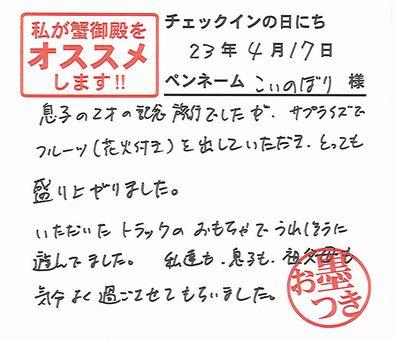 私が蟹御殿を
オススメ
します!!
チェックインの日にち
23年4月17日
ペンネーム こいのぼり 様
息子の2才の記念旅行でしたが、サプライズで
フルーツ(花火付き)を出していただき、とっても
盛り上がりました。
いただいたトラックのおもちゃでうれしそうに
遊んでました。私達も、息子も、祖父母も
気分よく過ごさせてもらいました。
お墨つき